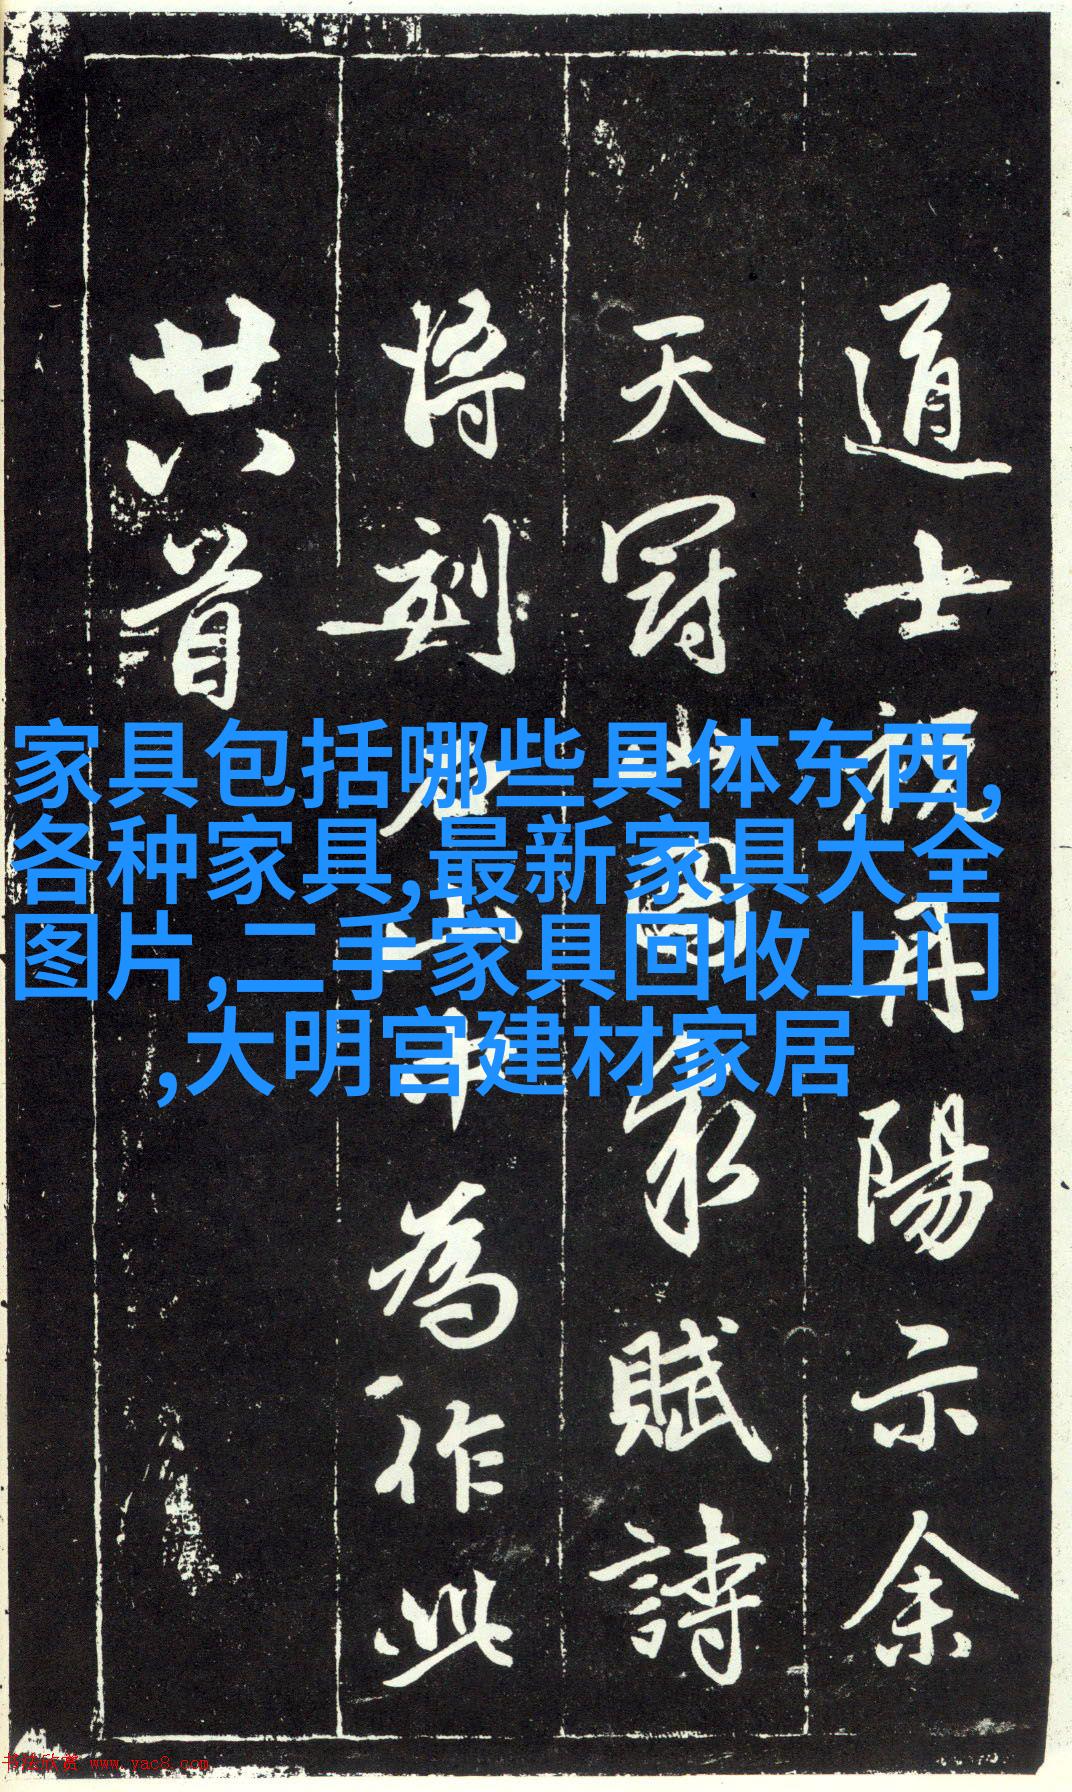 道士祝丹陽示余
天冠山图求賦詩
将刻石山中為作此
廿八首
家具包括哪些具体东西,
各种家具,最新家具大全
图片,二手家具回收上门
,大明宫建材家居
书法欣赏 www.yac8.com